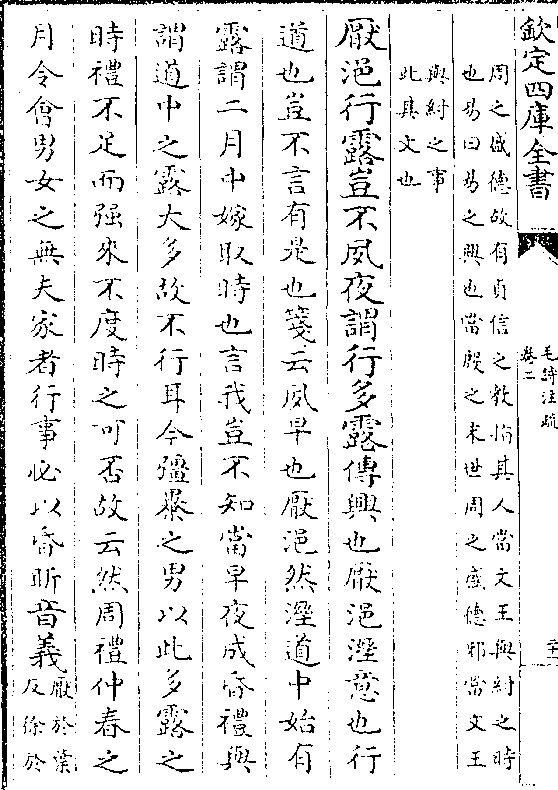 欽定四庫全書
毛詩注疏
卷二
周之盛德故有貞信之敎指其人當文王與紂之時
也易曰易之興也當殷之末世周之盛德邪當文王
與紂之事
此其文也
厭浥行露豈不夙夜謂行多露傳興也厭浥溼意也行
道也豈不言有是也箋云夙早也厭浥然溼道中始有
露謂二月中嫁取時也言我豈不知當早夜成昏禮與
謂道中之露大多故不行耳今彊暴之男以此多露之
時禮不足而强來不度時之可否故云然周禮仲春之
月令會男女之無夫家者行事必以昏昕音義
厭於葉
反徐於